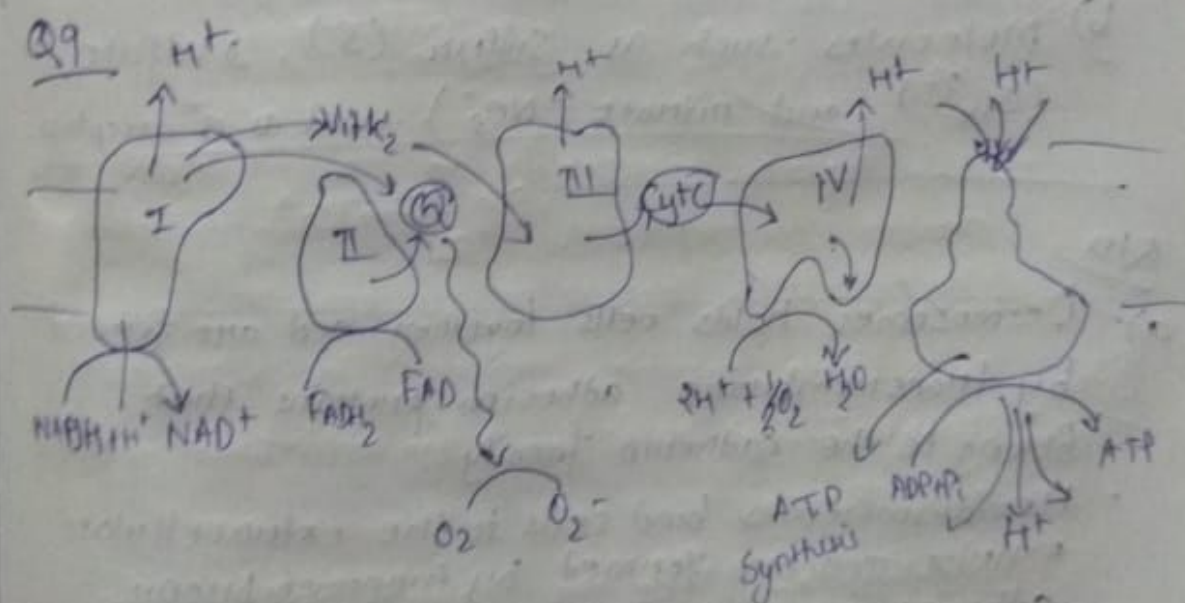 Q9
H+
H+
H+
H+
Vitk2
I
II
Q
III
Cytc
IV
NADH+H+
NAD+
FADH2
FAD
2H+ + 1/2O2
H2O
O2
O2-
ATP
Synthesis
ADP+Pi
H+
ATP